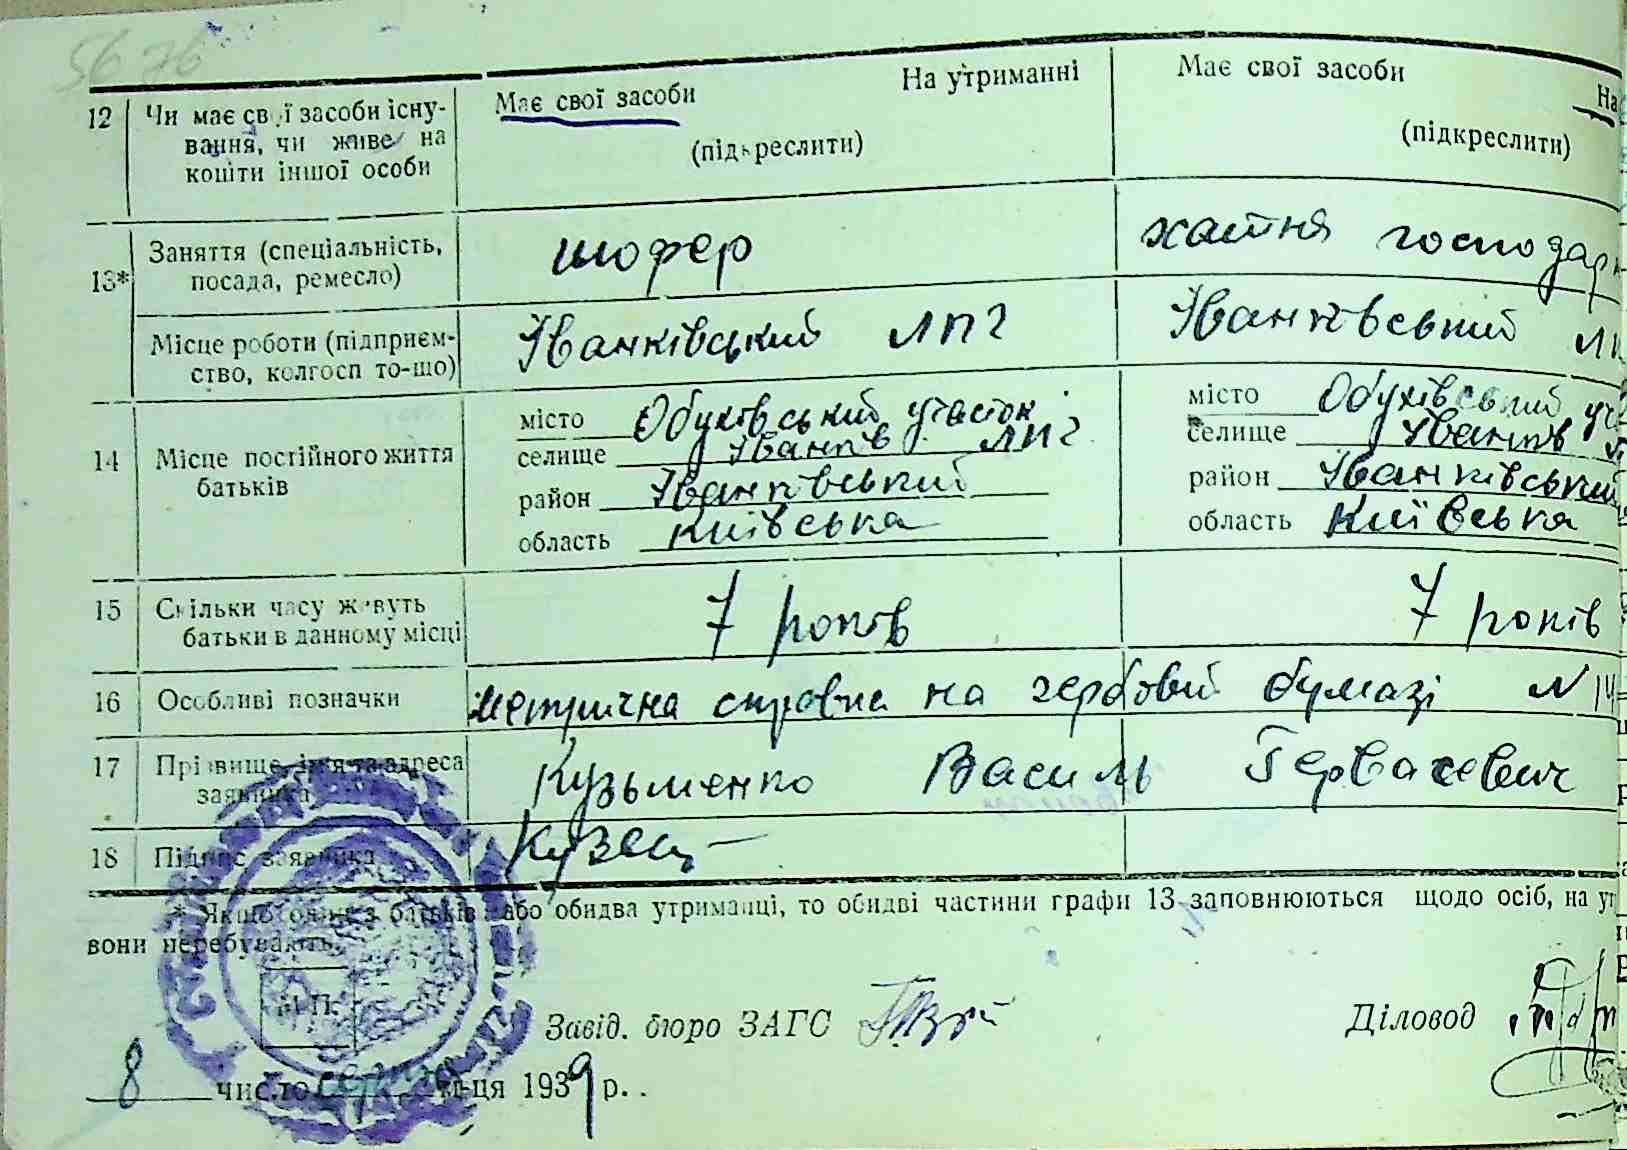 5676
12 Чи має св ї засоби існу-
вання, чи живе на
кошти іншої особи
Має свої засоби На утриманні
(підкреслити)
Має свої засоби На
(підкреслити)
13* Заняття (спеціальність,
посада, ремесло)
шофер
хатня господар
Місце роботи (підприєм-
ство, колгосп то-що)
Іванківський ЛПГ
Іванківський ЛП
14 Місце постійного життя
батьків
місто Обухівський участок
селище Іванків ЛПГ
район Іванківський
область Київська
місто Обухівський уч
селище Іванків
район Іванківський
область Київська
15 Скільки часу живуть
батьки в данному місці
7 років
7 років
16 Особливі позначки
метрична справка на гербовій бумазі N 14
17 Прізвище, ім'я та адреса
заявника
Кузьменко Василь Гервасевич
18 Підпис заявника
* Якщо один з батьків або обидва утриманці, то обидві частини графи 13 заповнюються щодо осіб, на ут
вони перебувають.
М.П.
Завід. бюро ЗАГС
Діловод
8 число м-ця 1939 р.